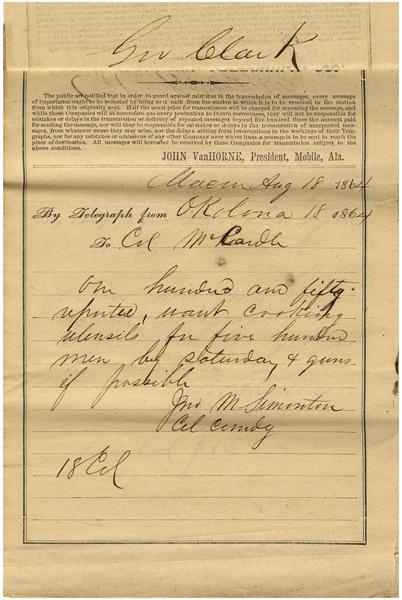 Gov Clark
The public are notified that in order to guard against mistakes in the transmission of messages, every message
of importance ought to be repeated by being sent back from the station at which it is to be received to the station
from which it is originally sent. Half the usual price for transmission will be charged for repeating the message, and
while these Companies will as heretofore use every precaution to insure correctness, they will not be responsible for
mistakes or delays in the transmission or delivery of repeated messages beyond five hundred times the amount paid
for sending the message, nor will they be responsible for mistakes or delays in the transmission of unrepeated messages,
from whatever cause they may arise, nor for delays arising from interruptions in the workings of their Tele-
graphs, nor for any mistakes or omissions of any other Company over whose lines a message is to be sent to reach the
place of destination. All messages will hereafter be received by these Companies for transmission subject to the
above conditions.
JOHN VanHORNE, President, Mobile, Ala.
Macon Aug 18 1864
By Telegraph from Okolona 18 1864
To Col McCardle
One hundred and fifty
reported, want cooking
utensils for five hundred
men by saturday, & guns
if possible
Jno M Simonton
Col comdg
18 Col